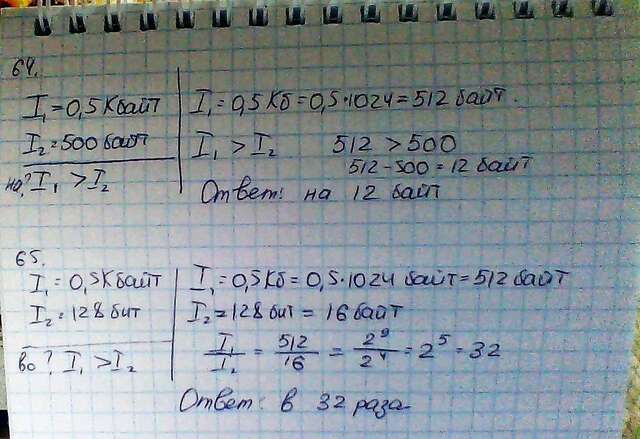 64.
I₁ = 0,5 Кбайт
I₂ = 500 байт
на? I₁ > I₂
I₁ = 0,5 Кб = 0,5·1024 = 512 байт.
I₁ > I₂ 512 > 500
512 - 500 = 12 байт
Ответ: на 12 байт
65.
I₁ = 0,5 Кбайт
I₂ = 128 бит
во? I₁ > I₂
I₁ = 0,5 Кб = 0,5·1024 байт = 512 байт
I₂ = 128 бит = 16 байт
I₁/I₂ = 512/16 = 2⁹/2⁴ = 2⁵ = 32
Ответ: в 32 раза